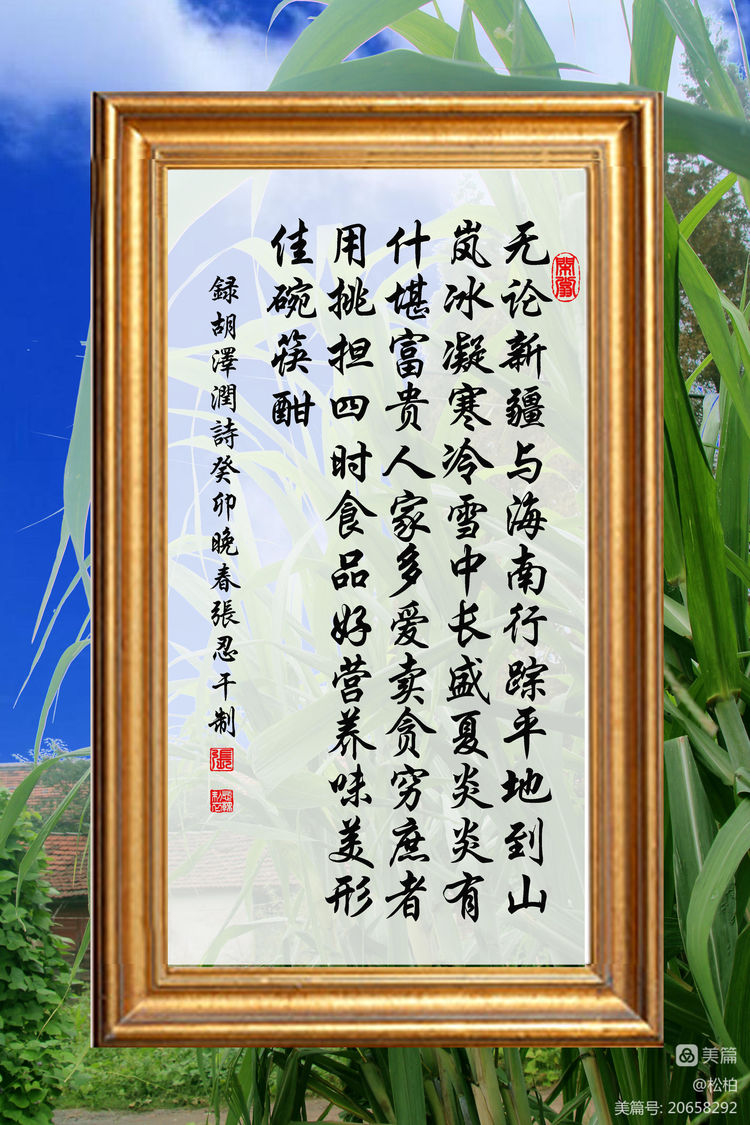 无论新疆与海南行踪平地到山
岚冰凝寒冷雪中长盛夏炎炎有
什堪富贵人家多爱卖贪穷庶者
用挑担四时食品好营养味美形
佳碗筷酣
録胡澤潤詩癸卯晚春張忍干制
張
美篇
@松柏
美篇号: 20658292